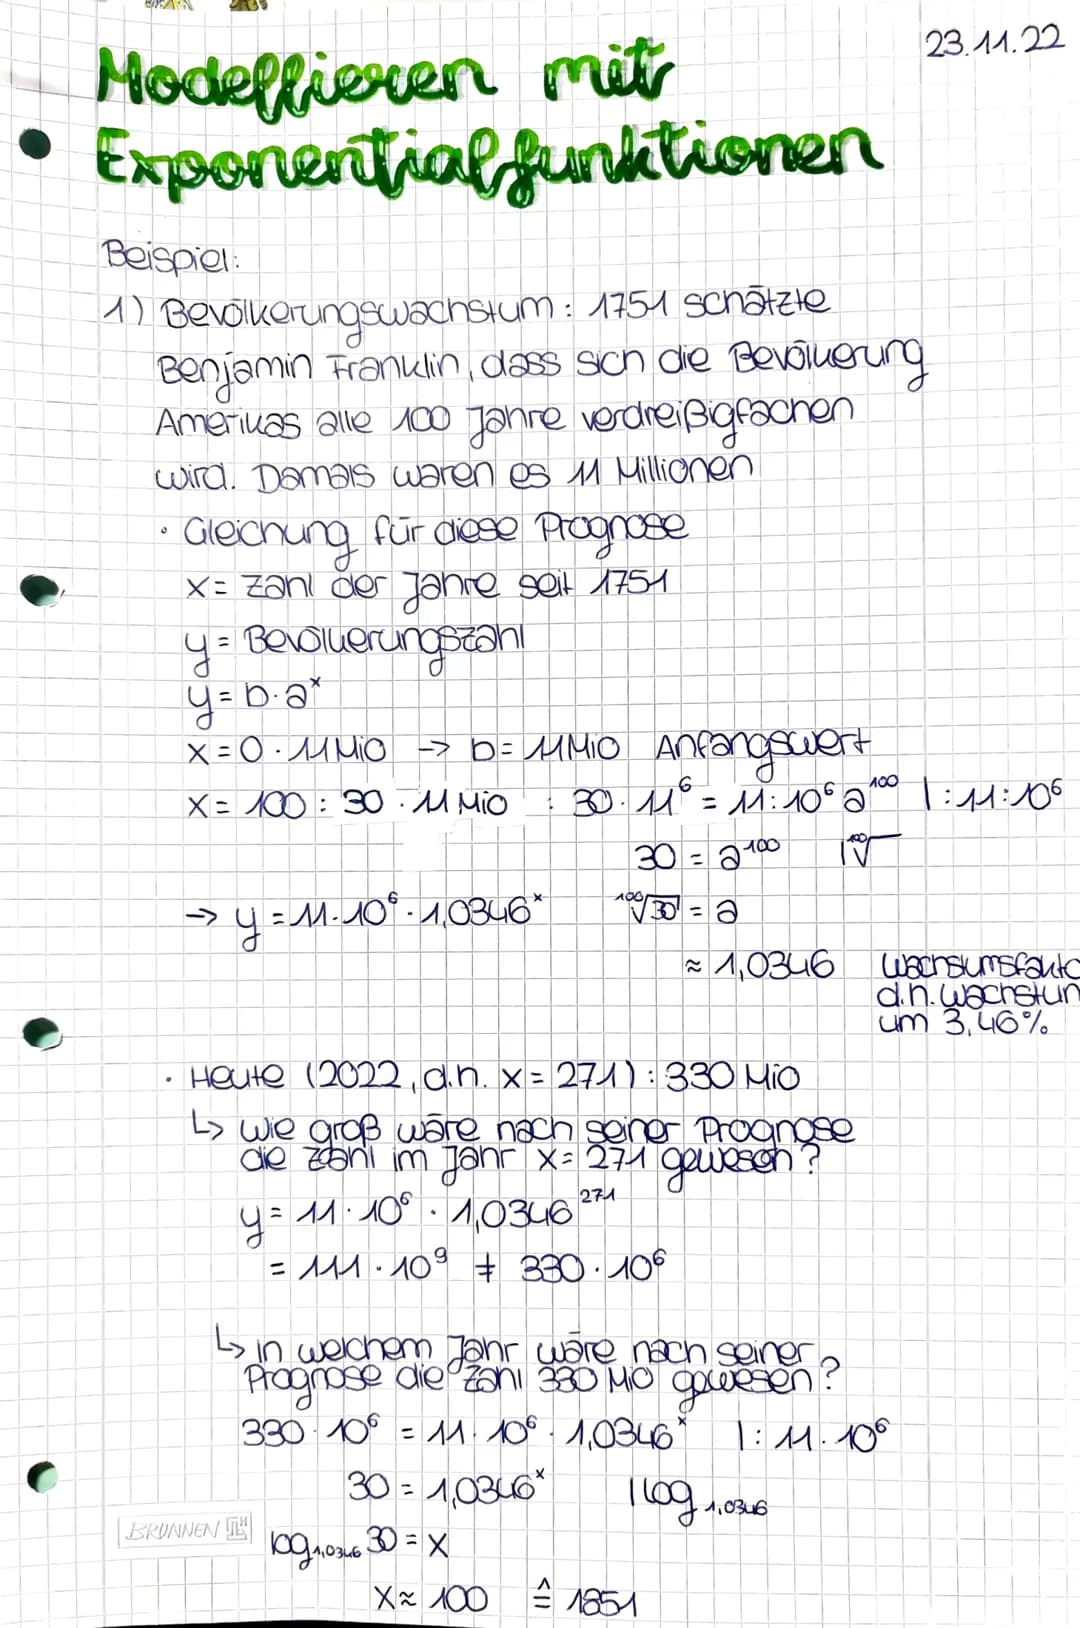 23.11.22
Modellieren mit
Exponentialfunktionen
Beispiel:
1) Bevölkerungswachstum: 1751 schätzte
Benjamin Franklin, dass sich die Bevölkerung
Amerikas alle 100 Jahre verdreißigfachen
wird. Damals waren es 11 Millionen
· Gleichung für diese Prognose
x = Zahl der Jahre seit 1751
y = Bevölkerungszahl
y = b · a^x
x = 0 · 11 Mio → b = 11 Mio Anfangswert
x = 100 : 30 · 11 Mio : 30 · 11^6 = 11 : 10^6 a^100 | : 11 : 10^6
30 = a^100 | 100√
→ y = 11 · 10^6 · 1,0346^x 100√30 = a
≈ 1,0346 Wachsumsfakto
d.h. Wachstun
um 3,46%
· Heute (2022, d.h. x = 271) : 330 Mio
↳ Wie groß wäre nach seiner Prognose
die Zahl im Jahr x = 271 gewesen?
y = 11 · 10^6 · 1,0346^271
= 111 · 10^9 ≠ 330 · 10^6
↳ in welchem Jahr wäre nach seiner
Prognose die Zahl 330 Mio gewesen?
330 · 10^6 = 11 · 10^6 · 1,0346^x | : 11 · 10^6
30 = 1,0346^x | log 1,0346
log 1,0346 30 = x
x ≈ 100 ≙ 1851
BRUNNEN